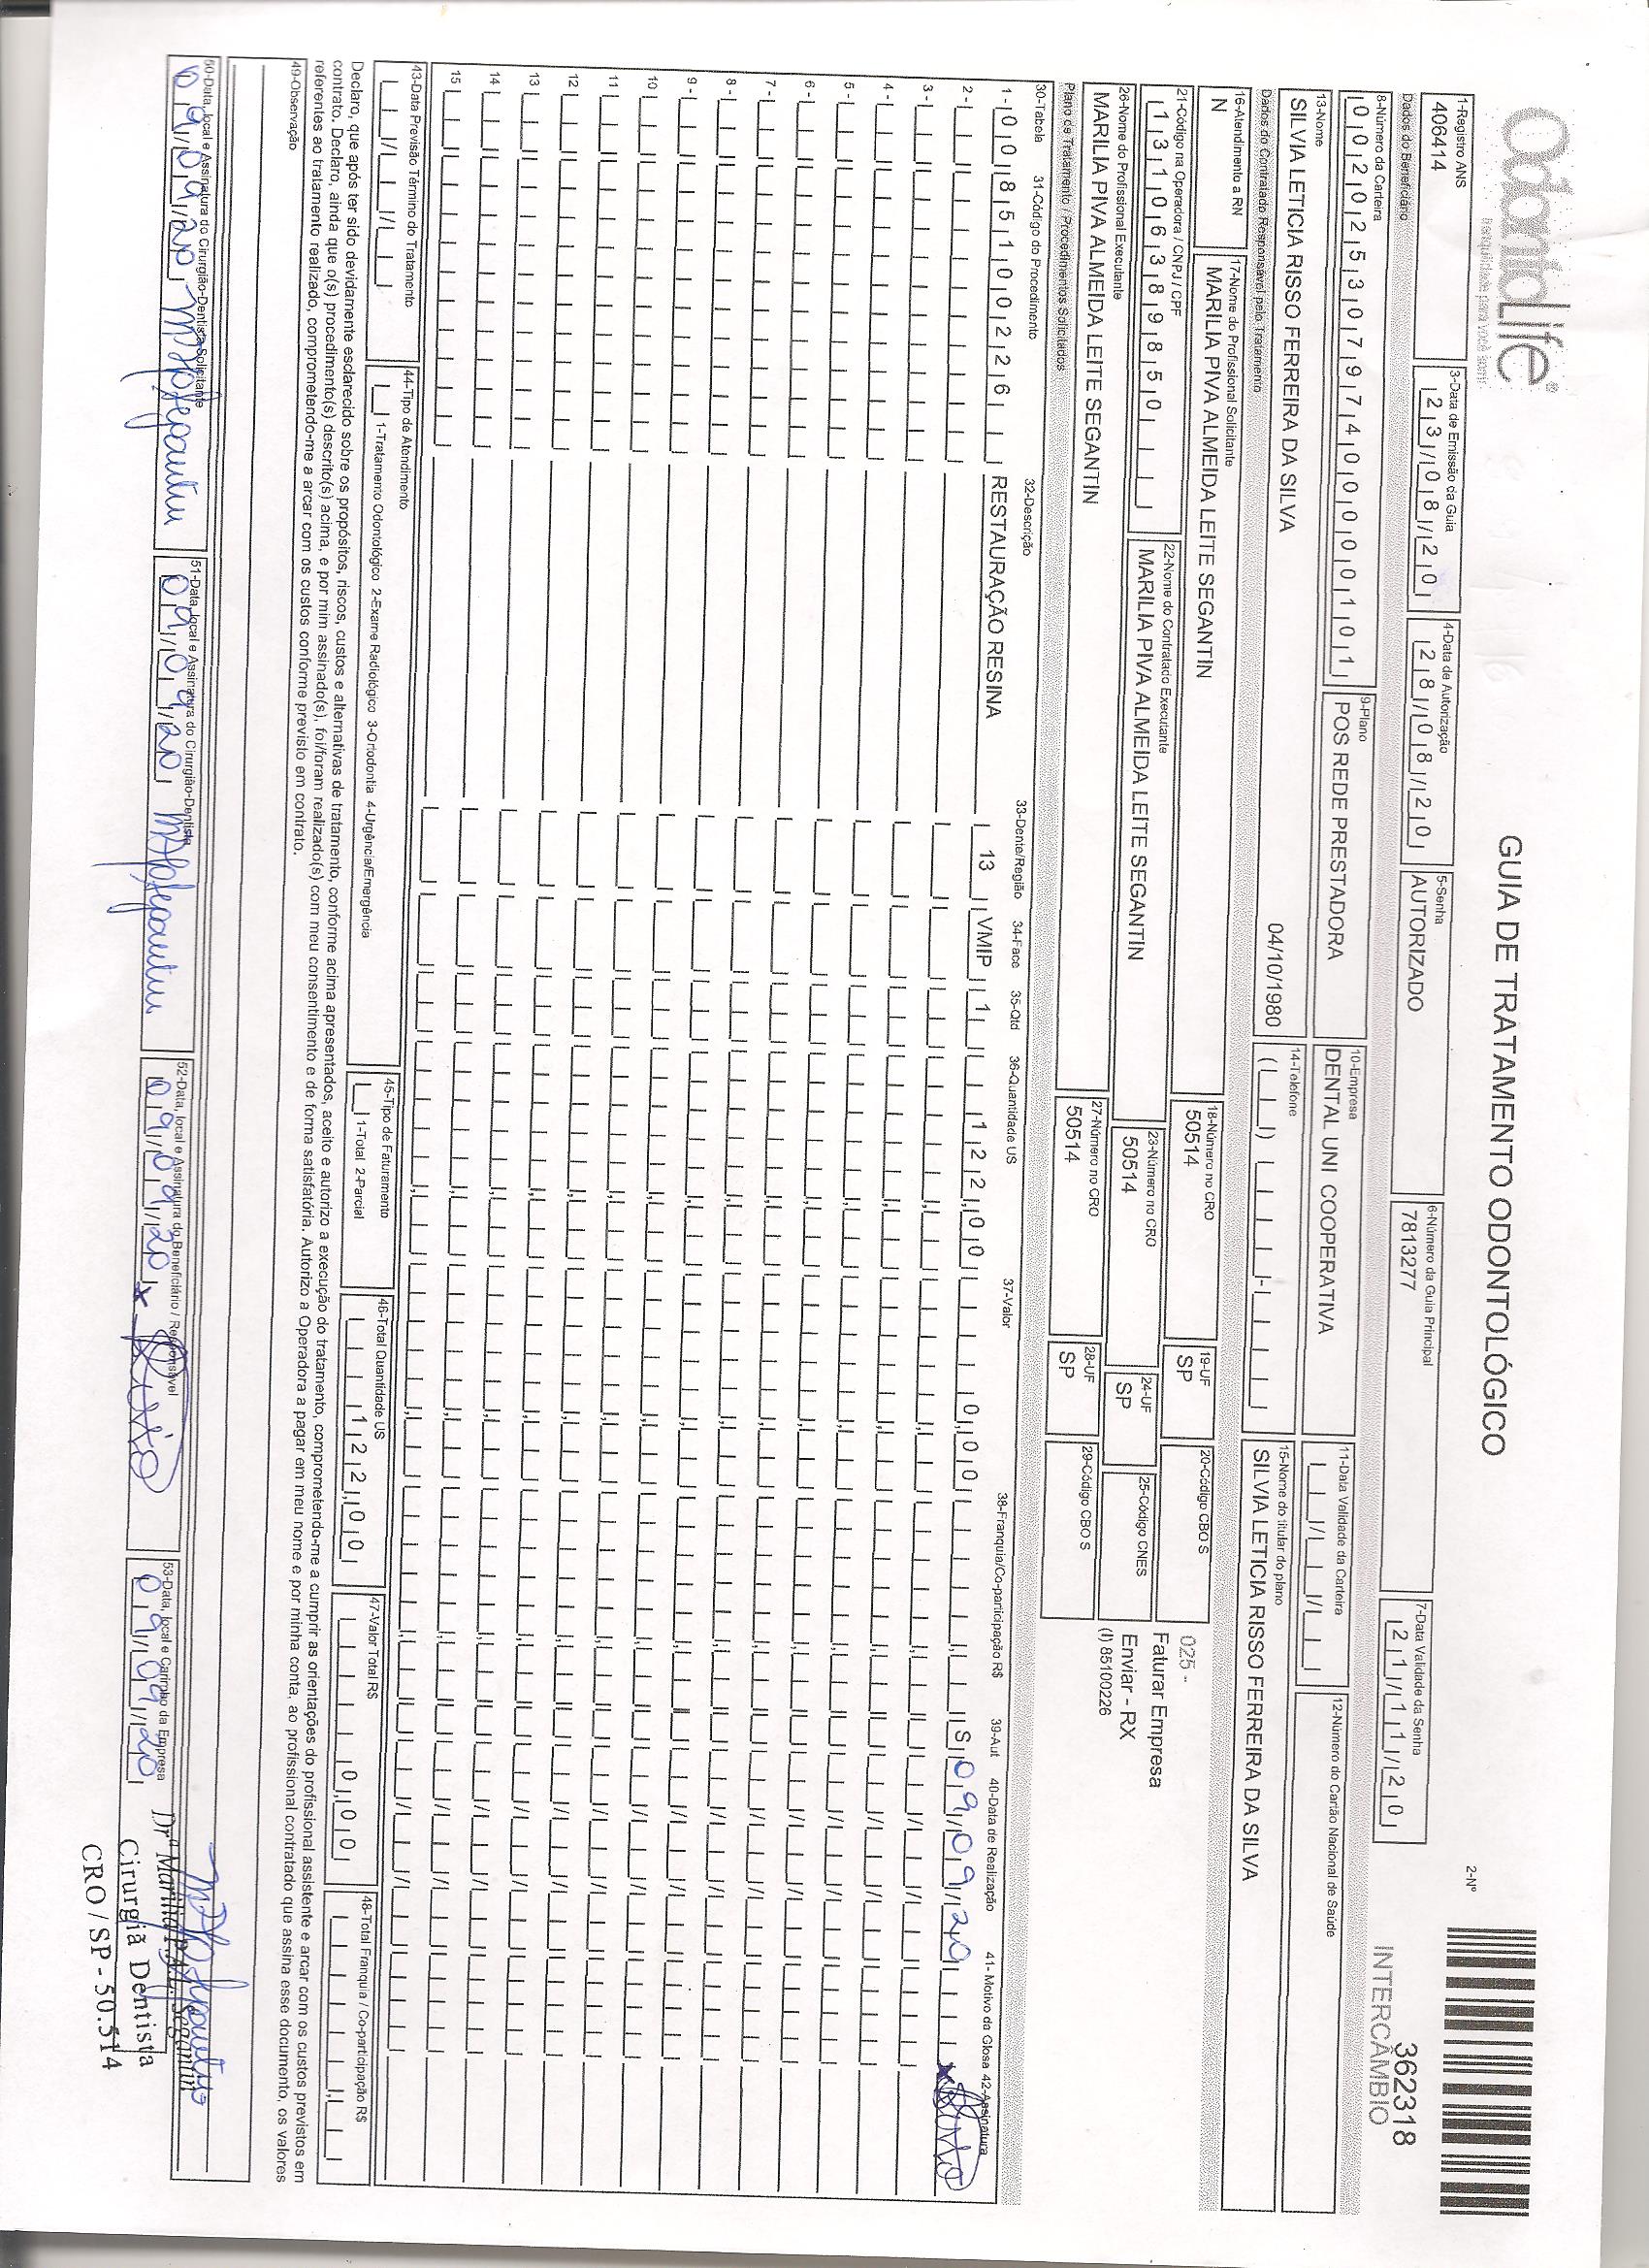 OdontoLife®
tranquilidade para você sorrir
GUIA DE TRATAMENTO ODONTOLÓGICO
2-Nº
362318
INTERCÂMBIO
1-Registro ANS
406414
3-Data de Emissão da Guia
23/08/20
4-Data de Autorização
28/08/20
5-Senha
AUTORIZADO
6-Número da Guia Principal
7813277
7-Data Validade da Senha
21/11/20
Dados do Beneficiário
8-Número da Carteira
00202530797400000101
9-Plano
POS REDE PRESTADORA
10-Empresa
DENTAL UNI COOPERATIVA
11-Data Validade da Carteira
12-Número do Cartão Nacional de Saúde
13-Nome
SILVIA LETICIA RISSO FERREIRA DA SILVA
04/10/1980
14-Telefone
15-Nome do titular do plano
SILVIA LETICIA RISSO FERREIRA DA SILVA
Dados do Contratado Responsável pelo Tratamento
16-Atendimento a RN
N
17-Nome do Profissional Solicitante
MARILIA PIVA ALMEIDA LEITE SEGANTIN
18-Número no CRO
50514
19-UF
SP
20-Código CBO S
025 -
Faturar Empresa
Enviar - RX
(I) 85100226
21-Código na Operadora / CNPJ / CPF
13106389850
22-Nome do Contratado Executante
MARILIA PIVA ALMEIDA LEITE SEGANTIN
23-Número no CRO
50514
24-UF
SP
25-Código CNES
26-Nome do Profissional Executante
MARILIA PIVA ALMEIDA LEITE SEGANTIN
27-Número no CRO
50514
28-UF
SP
29-Código CBO S
Plano de Tratamento / Procedimentos Solicitados
30-Tabela 31-Código do Procedimento 32-Descrição 33-Dente/Região 34-Face 35-Qtd 36-Quantidade US 37-Valor 38-Franquia/Co-participação R$ 39-Aut 40-Data de Realização 41- Motivo da Glosa 42-Assinatura
1 - 00 85100226 RESTAURAÇÃO RESINA 13 VMIP 1 122,00 0,00 S 09/09/20
2 -
3 -
4 -
5 -
6 -
7 -
8 -
9 -
10
11
12
13
14
15
43-Data Previsão Término do Tratamento
44-Tipo de Atendimento
1-Tratamento Odontológico 2-Exame Radiológico 3-Ortodontia 4-Urgência/Emergência
45-Tipo de Faturamento
1-Total 2-Parcial
46-Total Quantidade US
122,00
47-Valor Total R$
0,00
48-Total Franquia / Co-participação R$
Declaro, que após ter sido devidamente esclarecido sobre os propósitos, riscos, custos e alternativas de tratamento, conforme acima apresentados, aceito e autorizo a execução do tratamento, comprometendo-me a cumprir as orientações do profissional assistente e arcar com os custos previstos em
contrato. Declaro, ainda que o(s) procedimento(s) descrito(s) acima, e por mim assinado(s), foi/foram realizado(s) com meu consentimento e de forma satisfatória. Autorizo a Operadora a pagar em meu nome e por minha conta, ao profissional contratado que assina esse documento, os valores
referentes ao tratamento realizado, comprometendo-me a arcar com os custos conforme previsto em contrato.
49-Observação
50-Data, local e Assinatura do Cirurgião-Dentista Solicitante
09/09/20
51-Data, local e Assinatura do Cirurgião-Dentista
09/09/20
52-Data, local e Assinatura do Beneficiário / Responsável
09/09/20
53-Data, local e Carimbo da Empresa
09/09/20
Drª Marilia P. A. L. Segantin
Cirurgiã Dentista
CRO / SP - 50.514